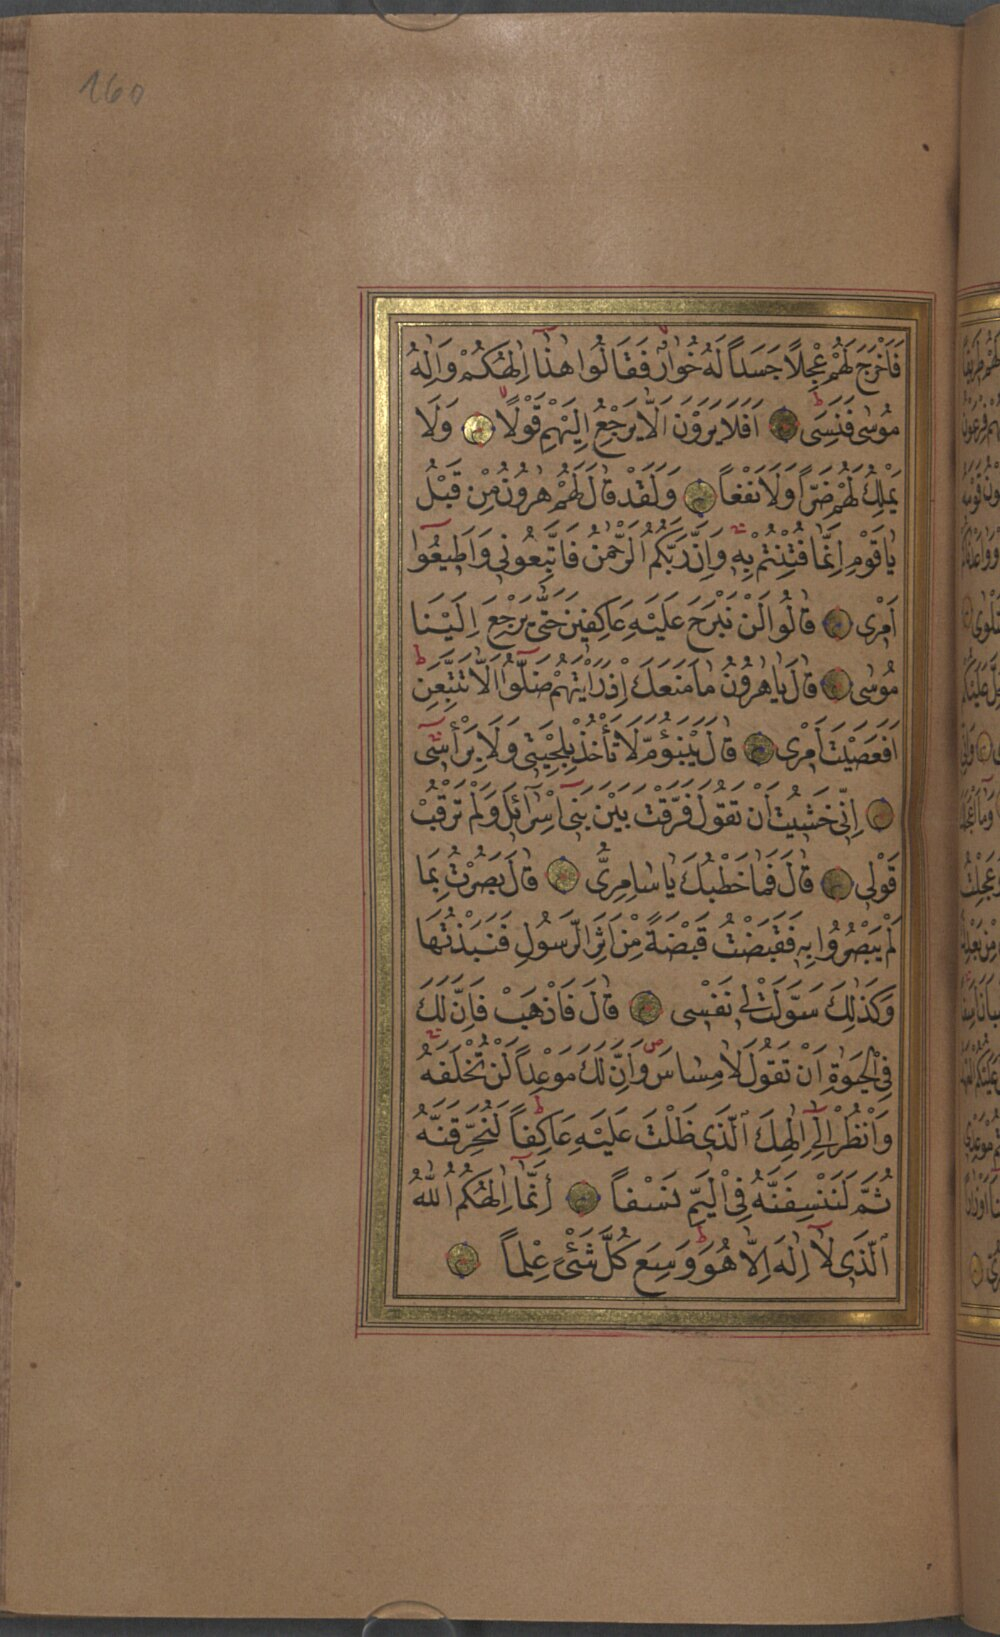 160
فَاَخْرَجَ لَهُمْ عِجْلاً جَسَداً لَهُ خُوَارٌ فَقَالُوا هٰذَٓا اِلٰهُكُمْ وَاِلٰهُ
مُوسٰى فَنَسِيَ اَفَلَا يَرَوْنَ اَلَّا يَرْجِعُ اِلَيْهِمْ قَوْلاً وَلَا
يَمْلِكُ لَهُمْ ضَرّاً وَلَا نَفْعاً وَلَقَدْ قَالَ لَهُمْ هٰرُونُ مِنْ قَبْلُ
يَاقَوْمِ اِنَّمَا فُتِنْتُمْ بِهِ وَاِنَّ رَبَّكُمُ الرَّحْمٰنُ فَاتَّبِعُونِي وَاَطِيعُٓوا
اَمْرِى قَالُوا لَنْ نَبْرَحَ عَلَيْهِ عَاكِفِينَ حَتّٰى يَرْجِعَ اِلَيْنَا
مُوسٰى قَالَ يَاهٰرُونُ مَا مَنَعَكَ اِذْ رَاَيْتَهُمْ ضَلُّٓوا اَلَّا تَتَّبِعَنِ
اَفَعَصَيْتَ اَمْرِى قَالَ يَبْنَؤُمَّ لَا تَأْخُذْ بِلِحْيَتِى وَلَا بِرَأْسِٓى
اِنِّى خَشِيتُ اَنْ تَقُولَ فَرَّقْتَ بَيْنَ بَنِٓى اِسْرَٓائِلَ وَلَمْ تَرْقُبْ
قَوْلِى قَالَ فَمَا خَطْبُكَ يَاسَامِرِىُّ قَالَ بَصُرْتُ بِمَا
لَمْ يَبْصُرُوا بِهِ فَقَبَضْتُ قَبْضَةً مِنْ اَثَرِ الرَّسُولِ فَنَبَذْتُهَا
وَكَذٰلِكَ سَوَّلَتْ لِى نَفْسِى قَالَ فَاذْهَبْ فَاِنَّ لَكَ
فِى الْحَيٰوةِ اَنْ تَقُولَ لَا مِسَاسَ وَاِنَّ لَكَ مَوْعِداً لَنْ تُخْلَفَهُ
وَانْظُرْ اِلٰٓى اِلٰهِكَ الَّذِى ظَلْتَ عَلَيْهِ عَاكِفاً لَنُحَرِّقَنَّهُ
ثُمَّ لَنَنْسِفَنَّهُ فِى الْيَمِّ نَسْفاً اِنَّمَٓا اِلٰهُكُمُ اللّٰهُ
الَّذِى لَٓا اِلٰهَ اِلَّا هُوَ وَسِعَ كُلَّ شَيْءٍ عِلْماً